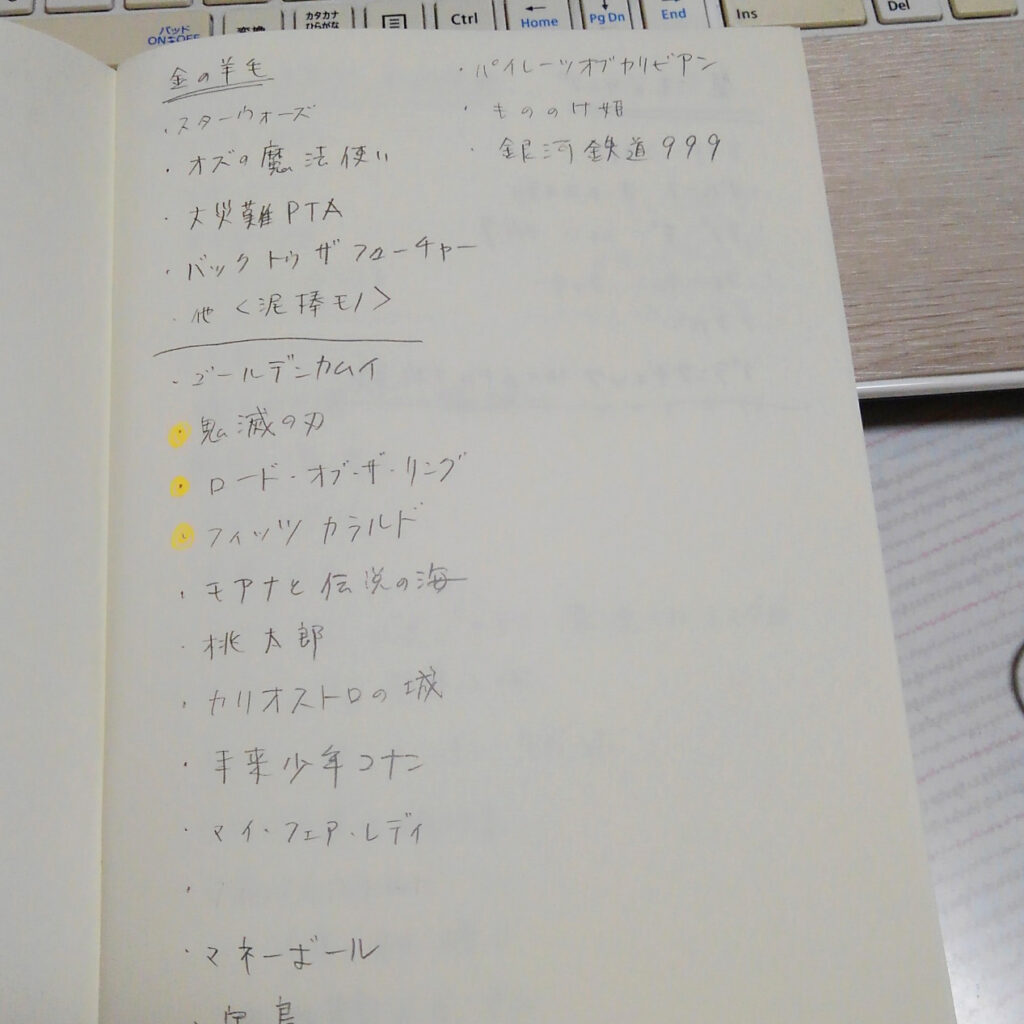 パッド
ON⇔OFF
変換
カタカナ
ひらがな
Ctrl
←
Home
Pg Dn
End
Ins
Del
金の羊毛
・スターウォーズ
・オズの魔法使い
・大災難PTA
・バックトゥザフューチャー
・他〈泥棒モノ〉
・ゴールデンカムイ
・鬼滅の刃
・ロード・オブ・ザ・リング
・フィッツカラルド
・モアナと伝説の海
・桃太郎
・カリオストロの城
・未来少年コナン
・マイ・フェア・レディ
・
・マネーボール
・宝島
・パイレーツオブカリビアン
・もののけ姫
・銀河鉄道999